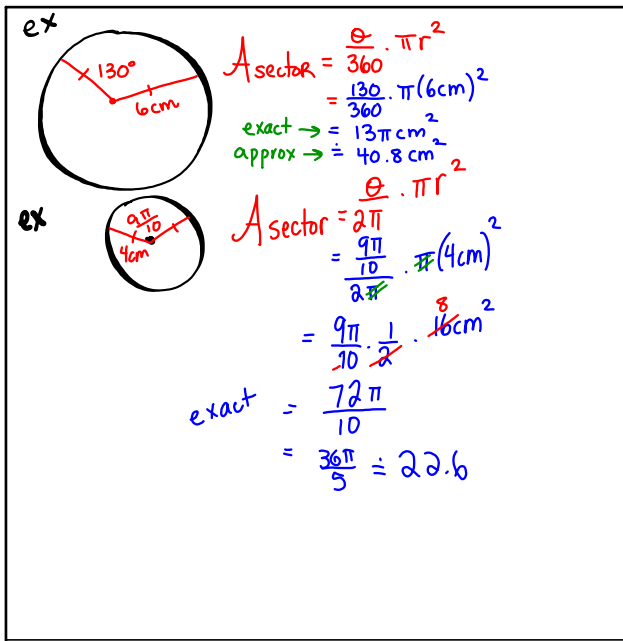 ex
130°
6cm
A sector = θ/360 · πr²
= 130/360 · π(6cm)²
exact → = 13π cm²
approx → ≐ 40.8 cm²
ex
9π/10
4cm
A sector = θ/2π · πr²
= (9π/10)/2π · π(4cm)²
= 9π/10 · 1/2 · 16cm²
8
exact = 72π/10
= 36π/5 ≐ 22.6